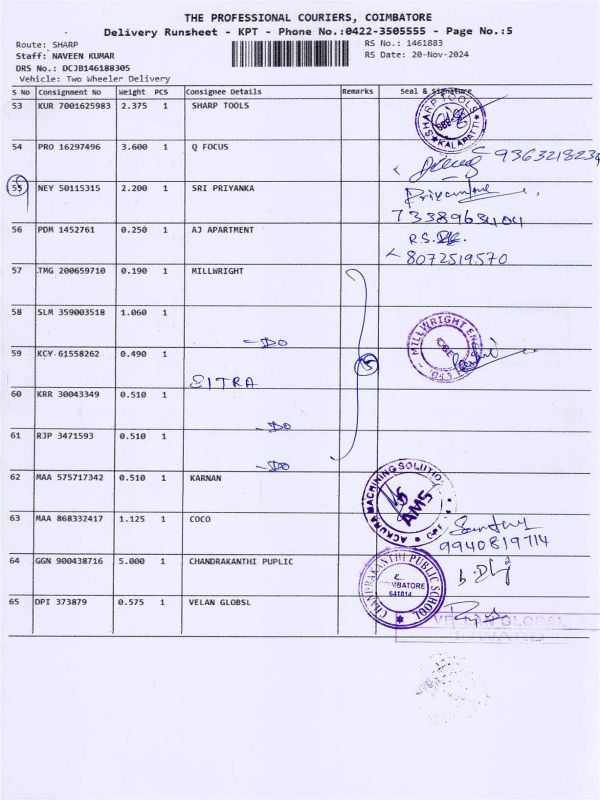 THE PROFESSIONAL COURIERS, COIMBATORE
Delivery Runsheet - KPT - Phone No.:0422-3505555 - Page No.:5
Route: SHARP RS No.: 1461883
Staff: NAVEEN KUMAR RS Date: 20-Nov-2024
DRS No.: DCJB146188305
Vehicle: Two Wheeler Delivery
S No Consignment No Weight PCS Consignee Details Remarks Seal & Signature
53 KUR 7001625983 2.375 1 SHARP TOOLS
SHARP TOOLS KALAPATTI
54 PRO 16297496 3.600 1 Q FOCUS
9363218234
55 NEY 50115315 2.200 1 SRI PRIYANKA
7338963404
56 PDM 1452761 0.250 1 AJ APARTMENT R.S.
8072519570
57 TMG 200659710 0.190 1 MILLWRIGHT
58 SLM 359003518 1.060 1
MILLWRIGHT
-DO
59 KCY 61558262 0.490 1
5
SITRA
60 KRR 30043349 0.510 1
-DO
61 RJP 3471593 0.510 1
-DO
62 MAA 575717342 0.510 1 KARNAN
ACKURA MACHINING SOLUTIO
AMS
63 MAA 868332417 1.125 1 COCO
9940819714
64 GGN 900438716 5.000 1 CHANDRAKANTHI PUPLIC
CHANDRAKANTHI PUBLIC SCHOOL
COIMBATORE
641014
65 DPI 373879 0.575 1 VELAN GLOBSL
VELAN GLOBAL